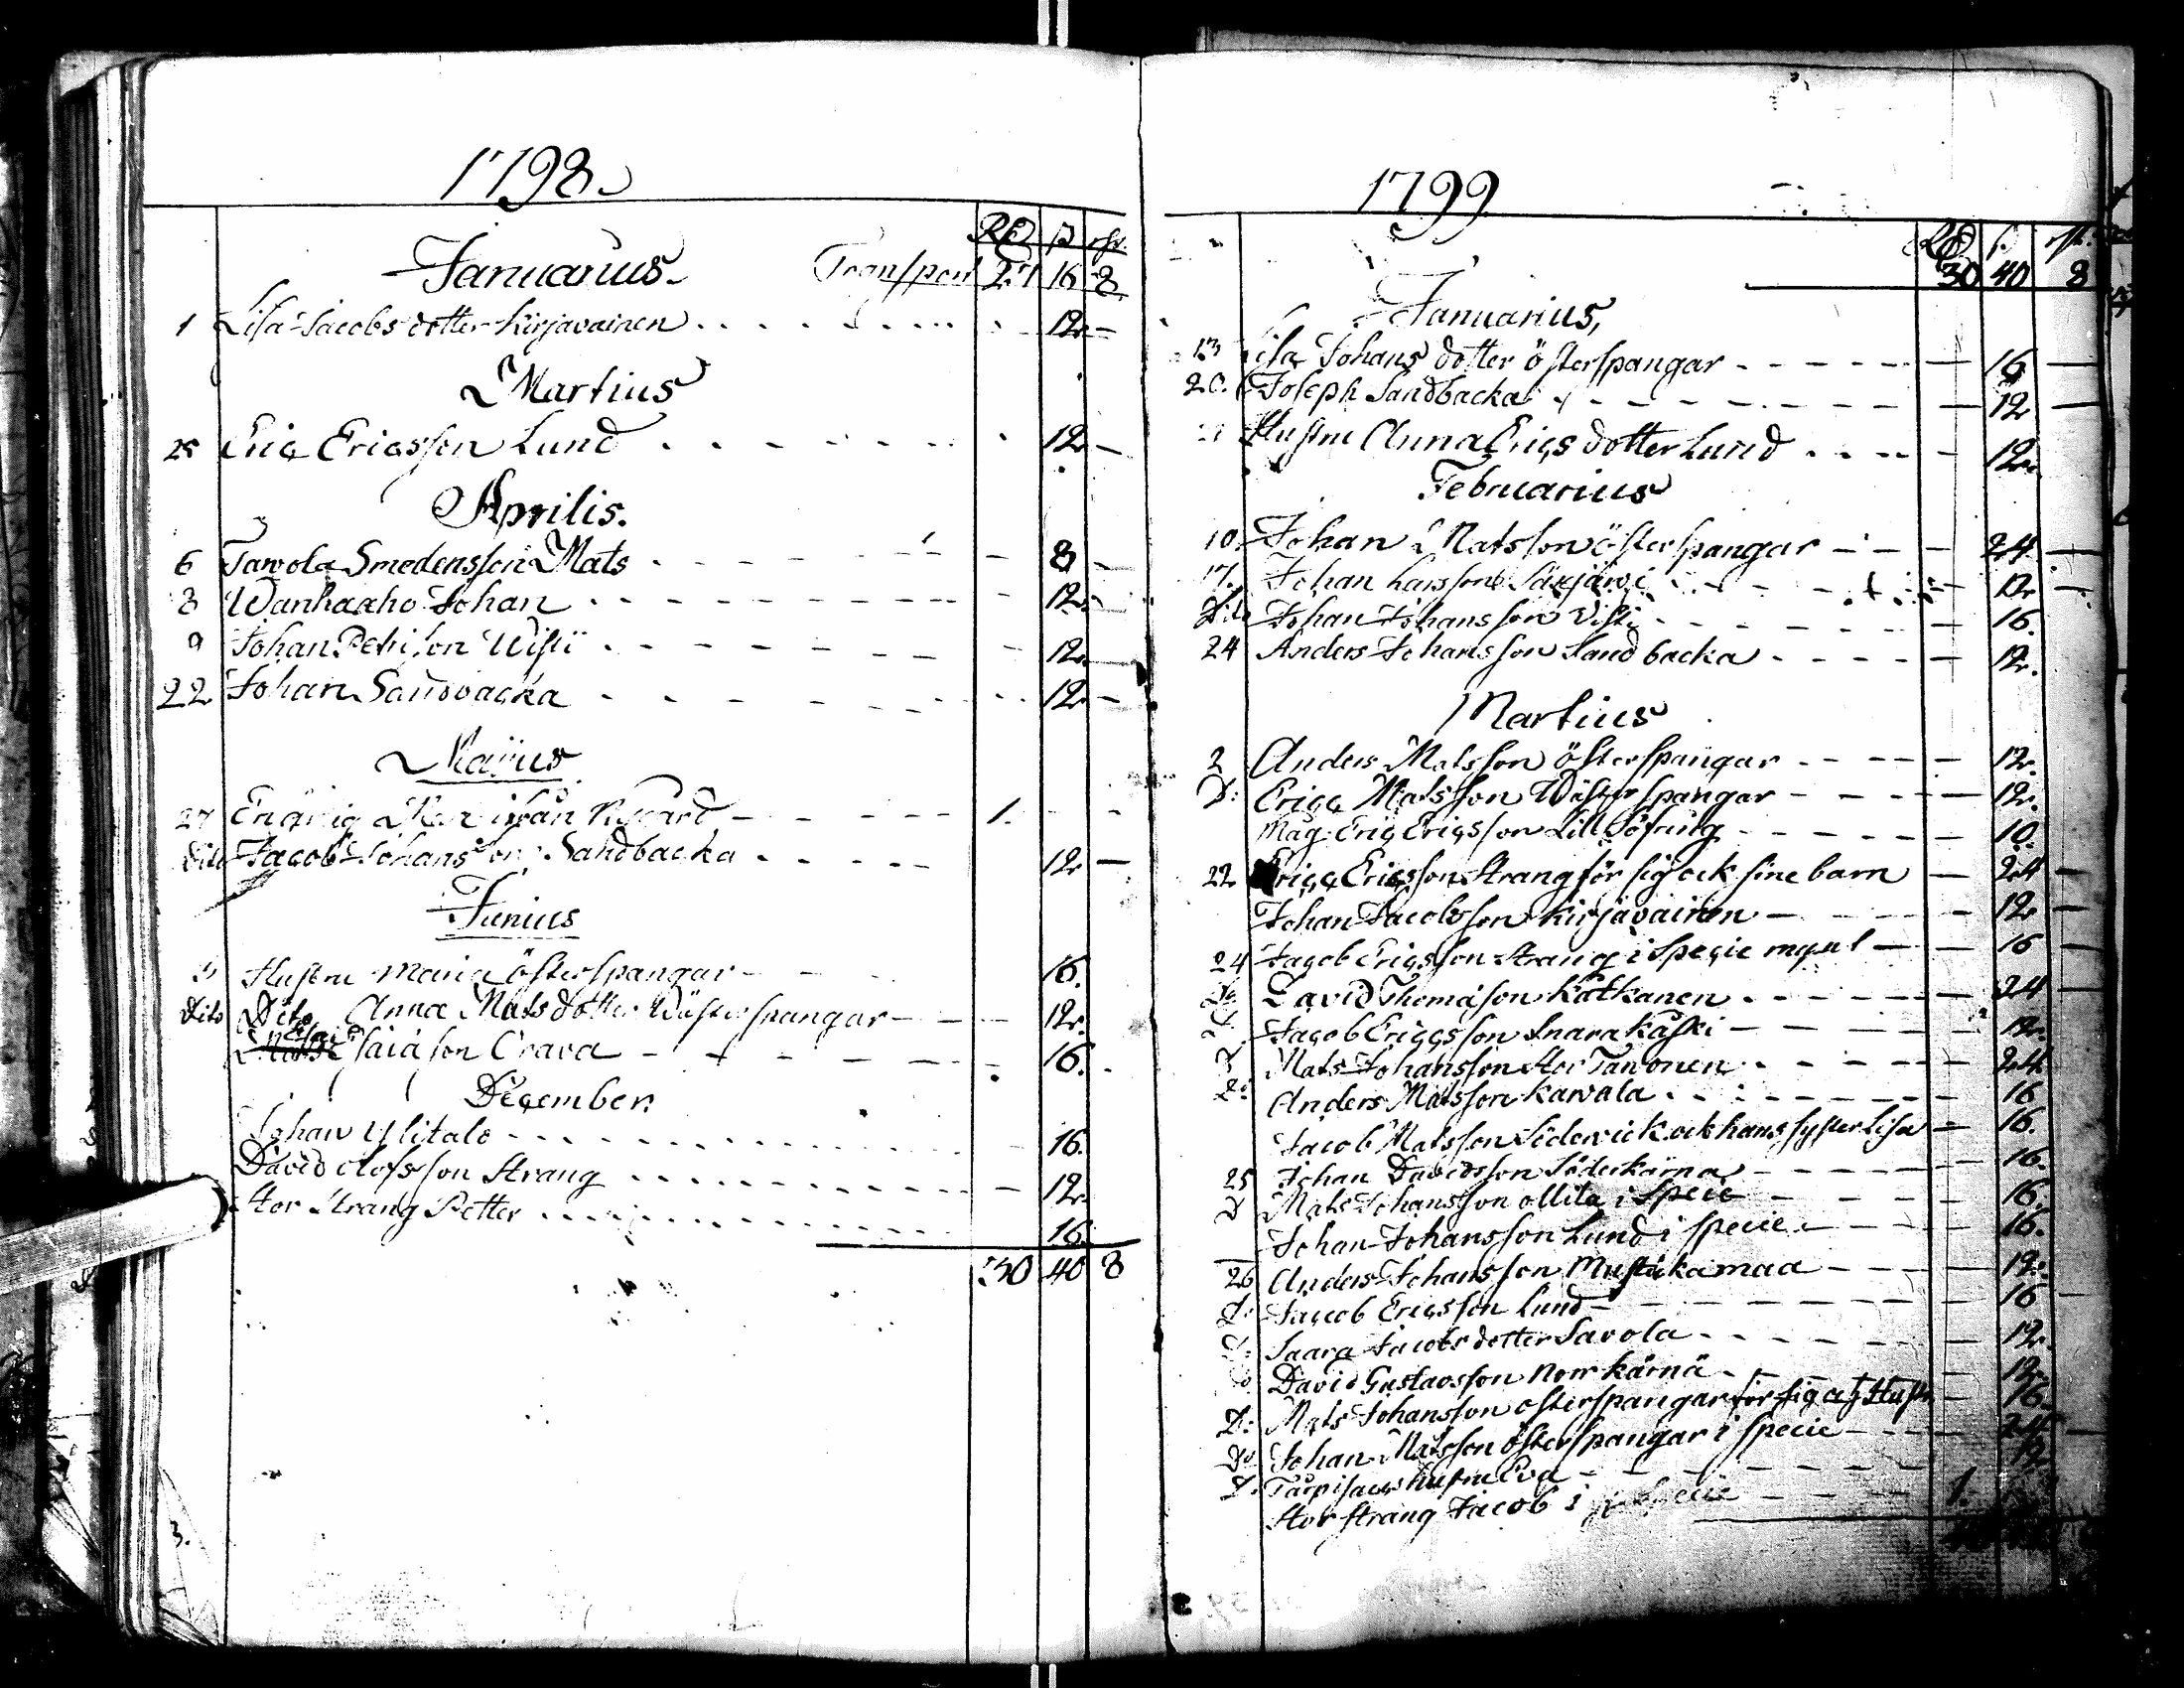 1798.
Rd ß rst.
Januarius. Transport 27 16 8
1 Lisa Jacobsdotter Kirjavainen 12 —
Martius
25 Eric Ericsson Lund 12 —
Aprilis.
6 Tawola Smedensson Mats 8 —
8 Wanhaaho Johan 12 —
9 Johan Petrison Uisti 12 —
22 Johan Sandbacka 12 —
Majus
27 1.
Dito Jacob Johansson Sandbacka 12 —
Junius
Hustru Maria österspangar 16.
Dito Dito Anna Matsdotter Wästerspangar 12.
Esaiason Orava 16.
December.
Johan Ylitalo 16.
David Olofsson Strang 12.
Stor Strang Petter 16.
30 40 8
1799
Rd ß rst.
30 40 8
Januarius,
13 Lisa Johansdotter österspangar 16 —
20. Joseph Sandbacka 12 —
Hustru Anna Ericsdotter Lund 12.
Februarius
10. Johan Matsson österspangar 24 —
17. Johan Larsson Säxjärvi 12 —
Dito Johan Johansson Visti 16.
24 Anders Johansson Sandbacka 12.
Martius
2 Anders Matsson österspangar 12.
D: Ericc Matsson Wästerspangar 12.
Måg Eric Ericsson Lill Söfring 10.
22 Ericc Ericsson Strang för sig ock sine barn 24 —
Johan Jacobsson Kirjävainen 12 —
24 Jacob Ericsson Strang i Specie mynt 16 —
Do David Thomason Kätkänen 24 —
D. Jacob Ericsson Snarakäski 12.
D Mats Johansson Stor Tavonen 24.
D: Anders Matsson Kawala 16
Jacob Matsson Söderwick ock hans syster Lisa 16.
25 Johan Davidsson Söderkärna 16.
D Mats Johansson Ollila i Specie 16.
Johan Johansson Lund i Specie 16.
26 Anders Johansson Mustakamaa 12.
D: Jacob Ericsson Lund 16 —
D: Saara Jacobsdotter Savola 12.
Do David Gustavsson Norrkärnä 12.
D: Mats Johansson österspangar för sig 16
Do Johan Matsson österspangar i Specie 24 —
D. hustru Eva 12
Stor Strang Jacob i Specie 1.